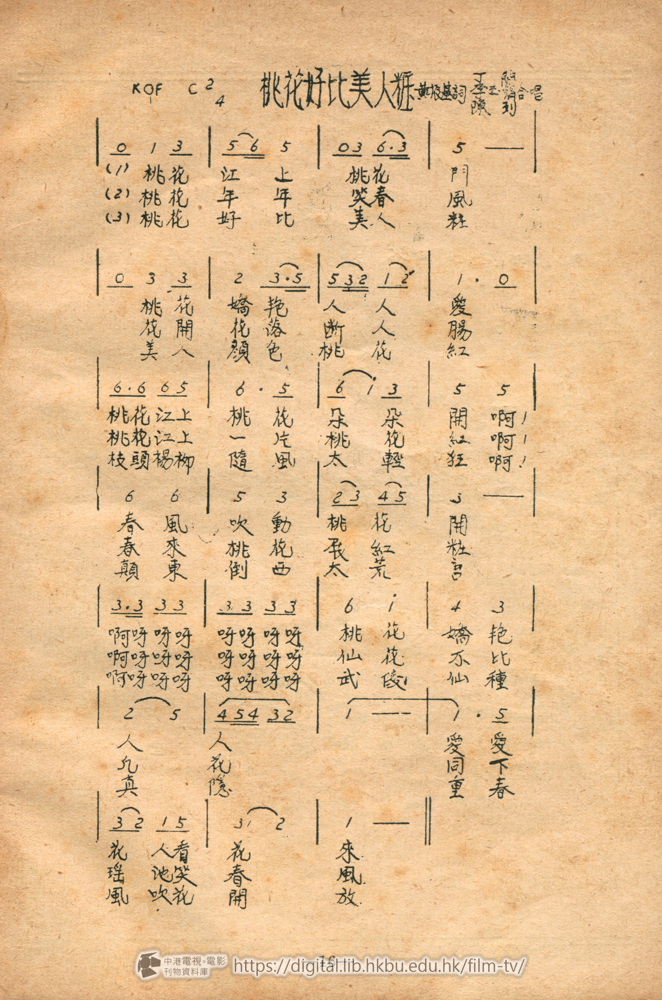 KOF C 2/4 桃花好比美人粧 黃 基詞 合唱
0 1 3 5 6 5 0 3 6·3 5 —
(1) 桃花 江 上 桃花 門
(2) 桃花 年 年 笑春 風
(3) 桃花 好 比 美人 粧
0 3 3 2 3·5 5 3 2 1 2 1 · 0
桃 花 嬌 艷 人 人 愛
花 開 花 落 斷 人 腸
美 人 顏 色 桃 花 紅
6·6 6 5 6 · 5 6 1 3 5 5
桃花江上 桃 花 朵 朵 開 啊!
桃花江上 一 片 桃 花 紅 啊!
枝頭楊柳 隨 風 太 輕 狂 啊!
6 6 5 3 2 3 4 5 3 —
春 風 吹 動 桃 花 開
春 來 桃 花 紅 粧
顛 東 倒 西 太 荒 宮
3·3 3 3 3 3 3 3 6 i 4 3
啊呀呀呀 呀呀呀呀 桃 花 嬌 艷
啊呀呀呀 呀呀呀呀 仙 花 不 比
啊呀呀呀 呀呀呀呀 武 后 仙 種
2 5 4 5 4 3 2 1 — 1 · 5
人 人 愛 愛
凡 花 同 下
真 隱 重 春
3 2 1 5 3 2 1 —
花 人看 花 來
瑶 池笑 春 風
風 吹花 開 放
16
中港電視·電影
刊物資料庫
https://digital.lib.hkbu.edu.hk/film-tv/